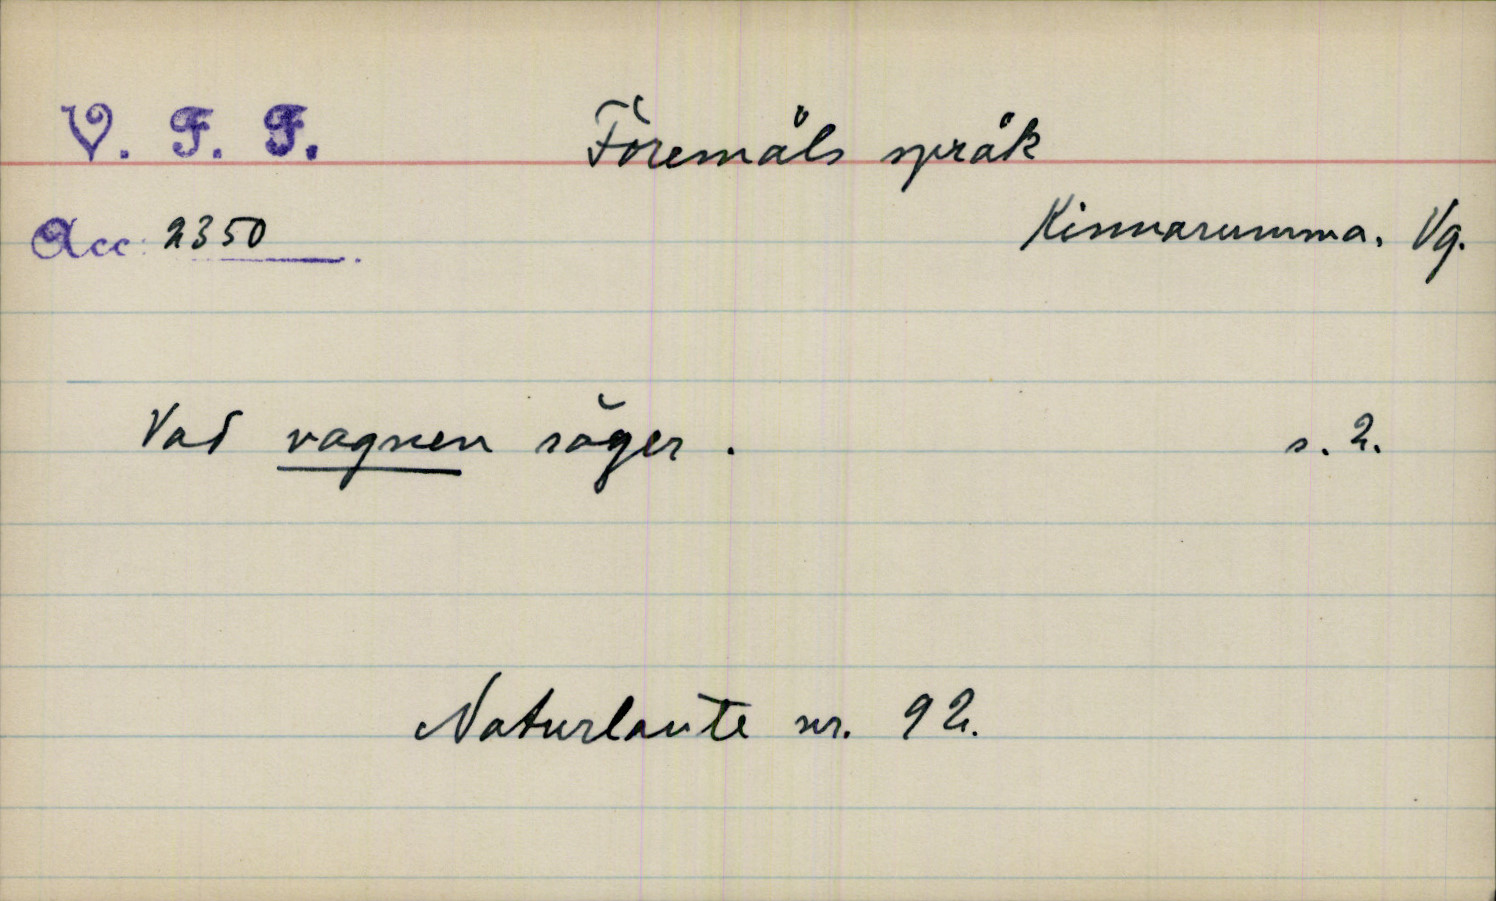 V. F. F. Föremåls språk
Acc. 2350 Kinnarumma. Vg.
Vad vagnen säger. s. 2.
Naturlaute nr. 92.